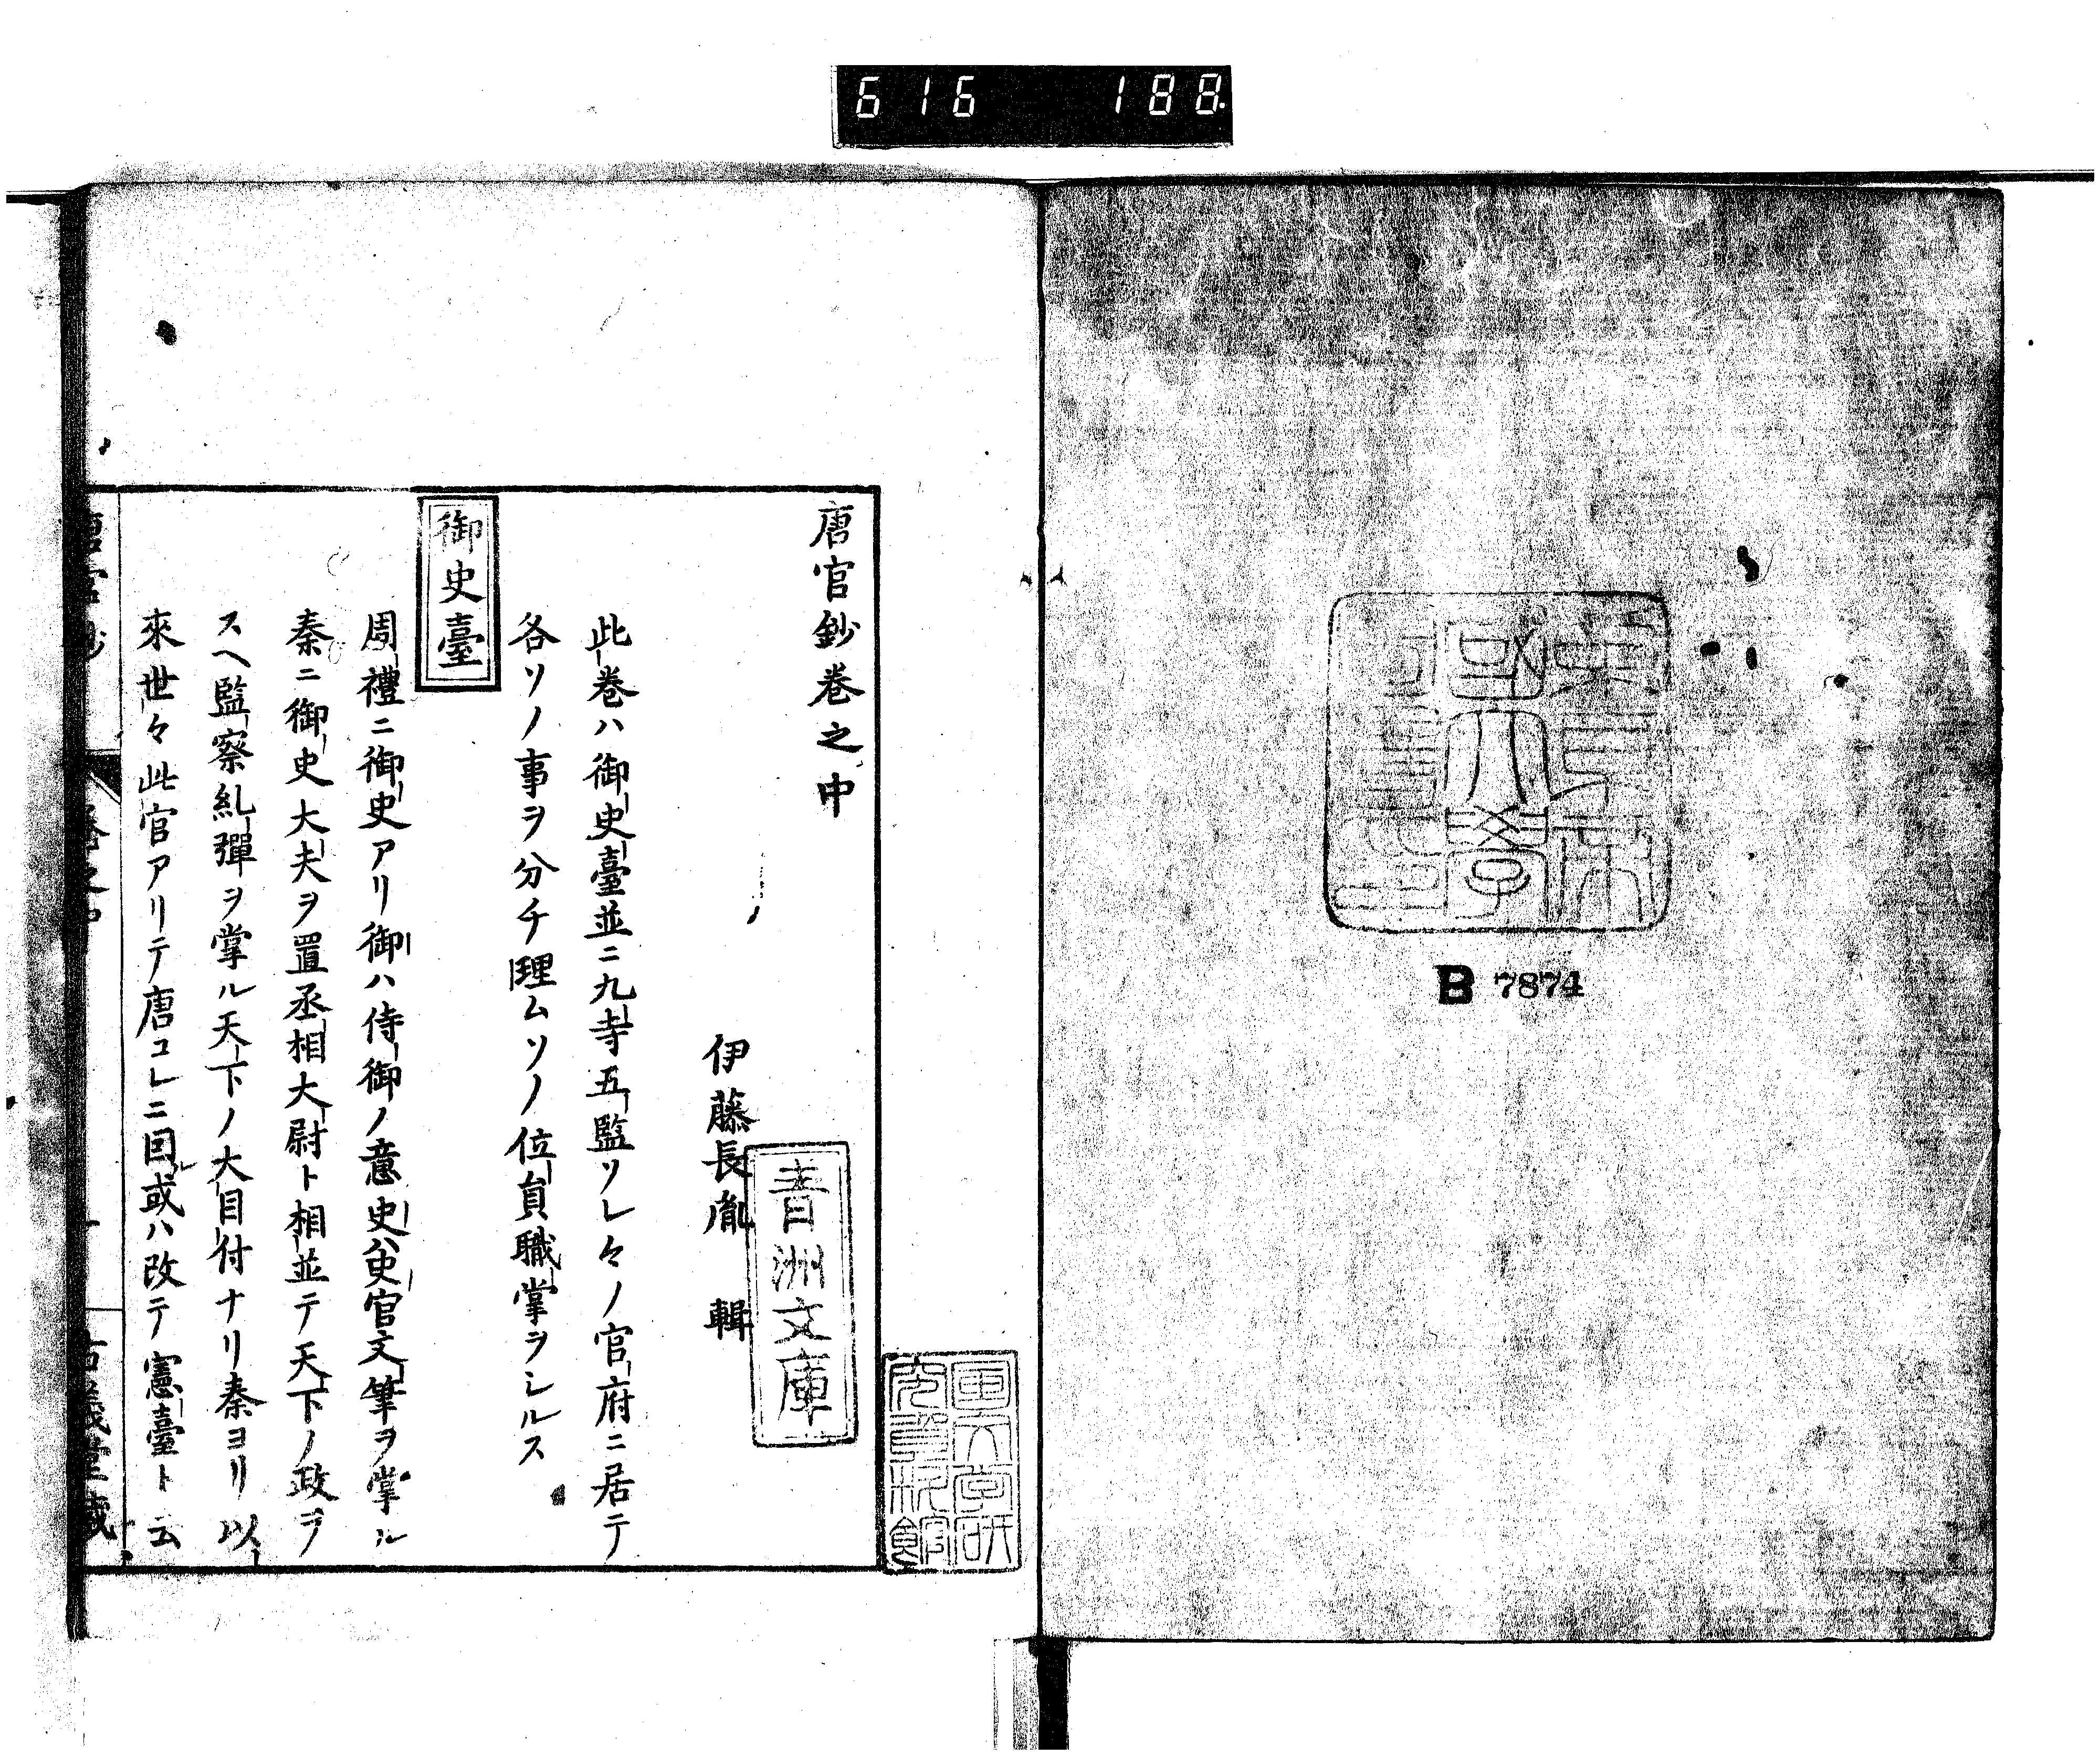 616 188.
B 7874
唐官鈔巻之中
伊藤長胤 輯
青洲文庫
此巻ハ御史臺並ニ九寺五監ソレ々ノ官府ニ居テ
各ソノ事ヲ分チ理ムソノ位員職掌ヲシルス
御史臺
周禮ニ御史アリ御ハ侍御ノ意史ハ史官文筆ヲ掌ル
秦ニ御史大夫ヲ置丞相大尉ト相並テ天下ノ政ヲ
スヘ監察糺彈ヲ掌ル天下ノ大目付ナリ秦ヨリ以
來世々此官アリテ唐コレニ因ル或ハ改テ憲臺ト云